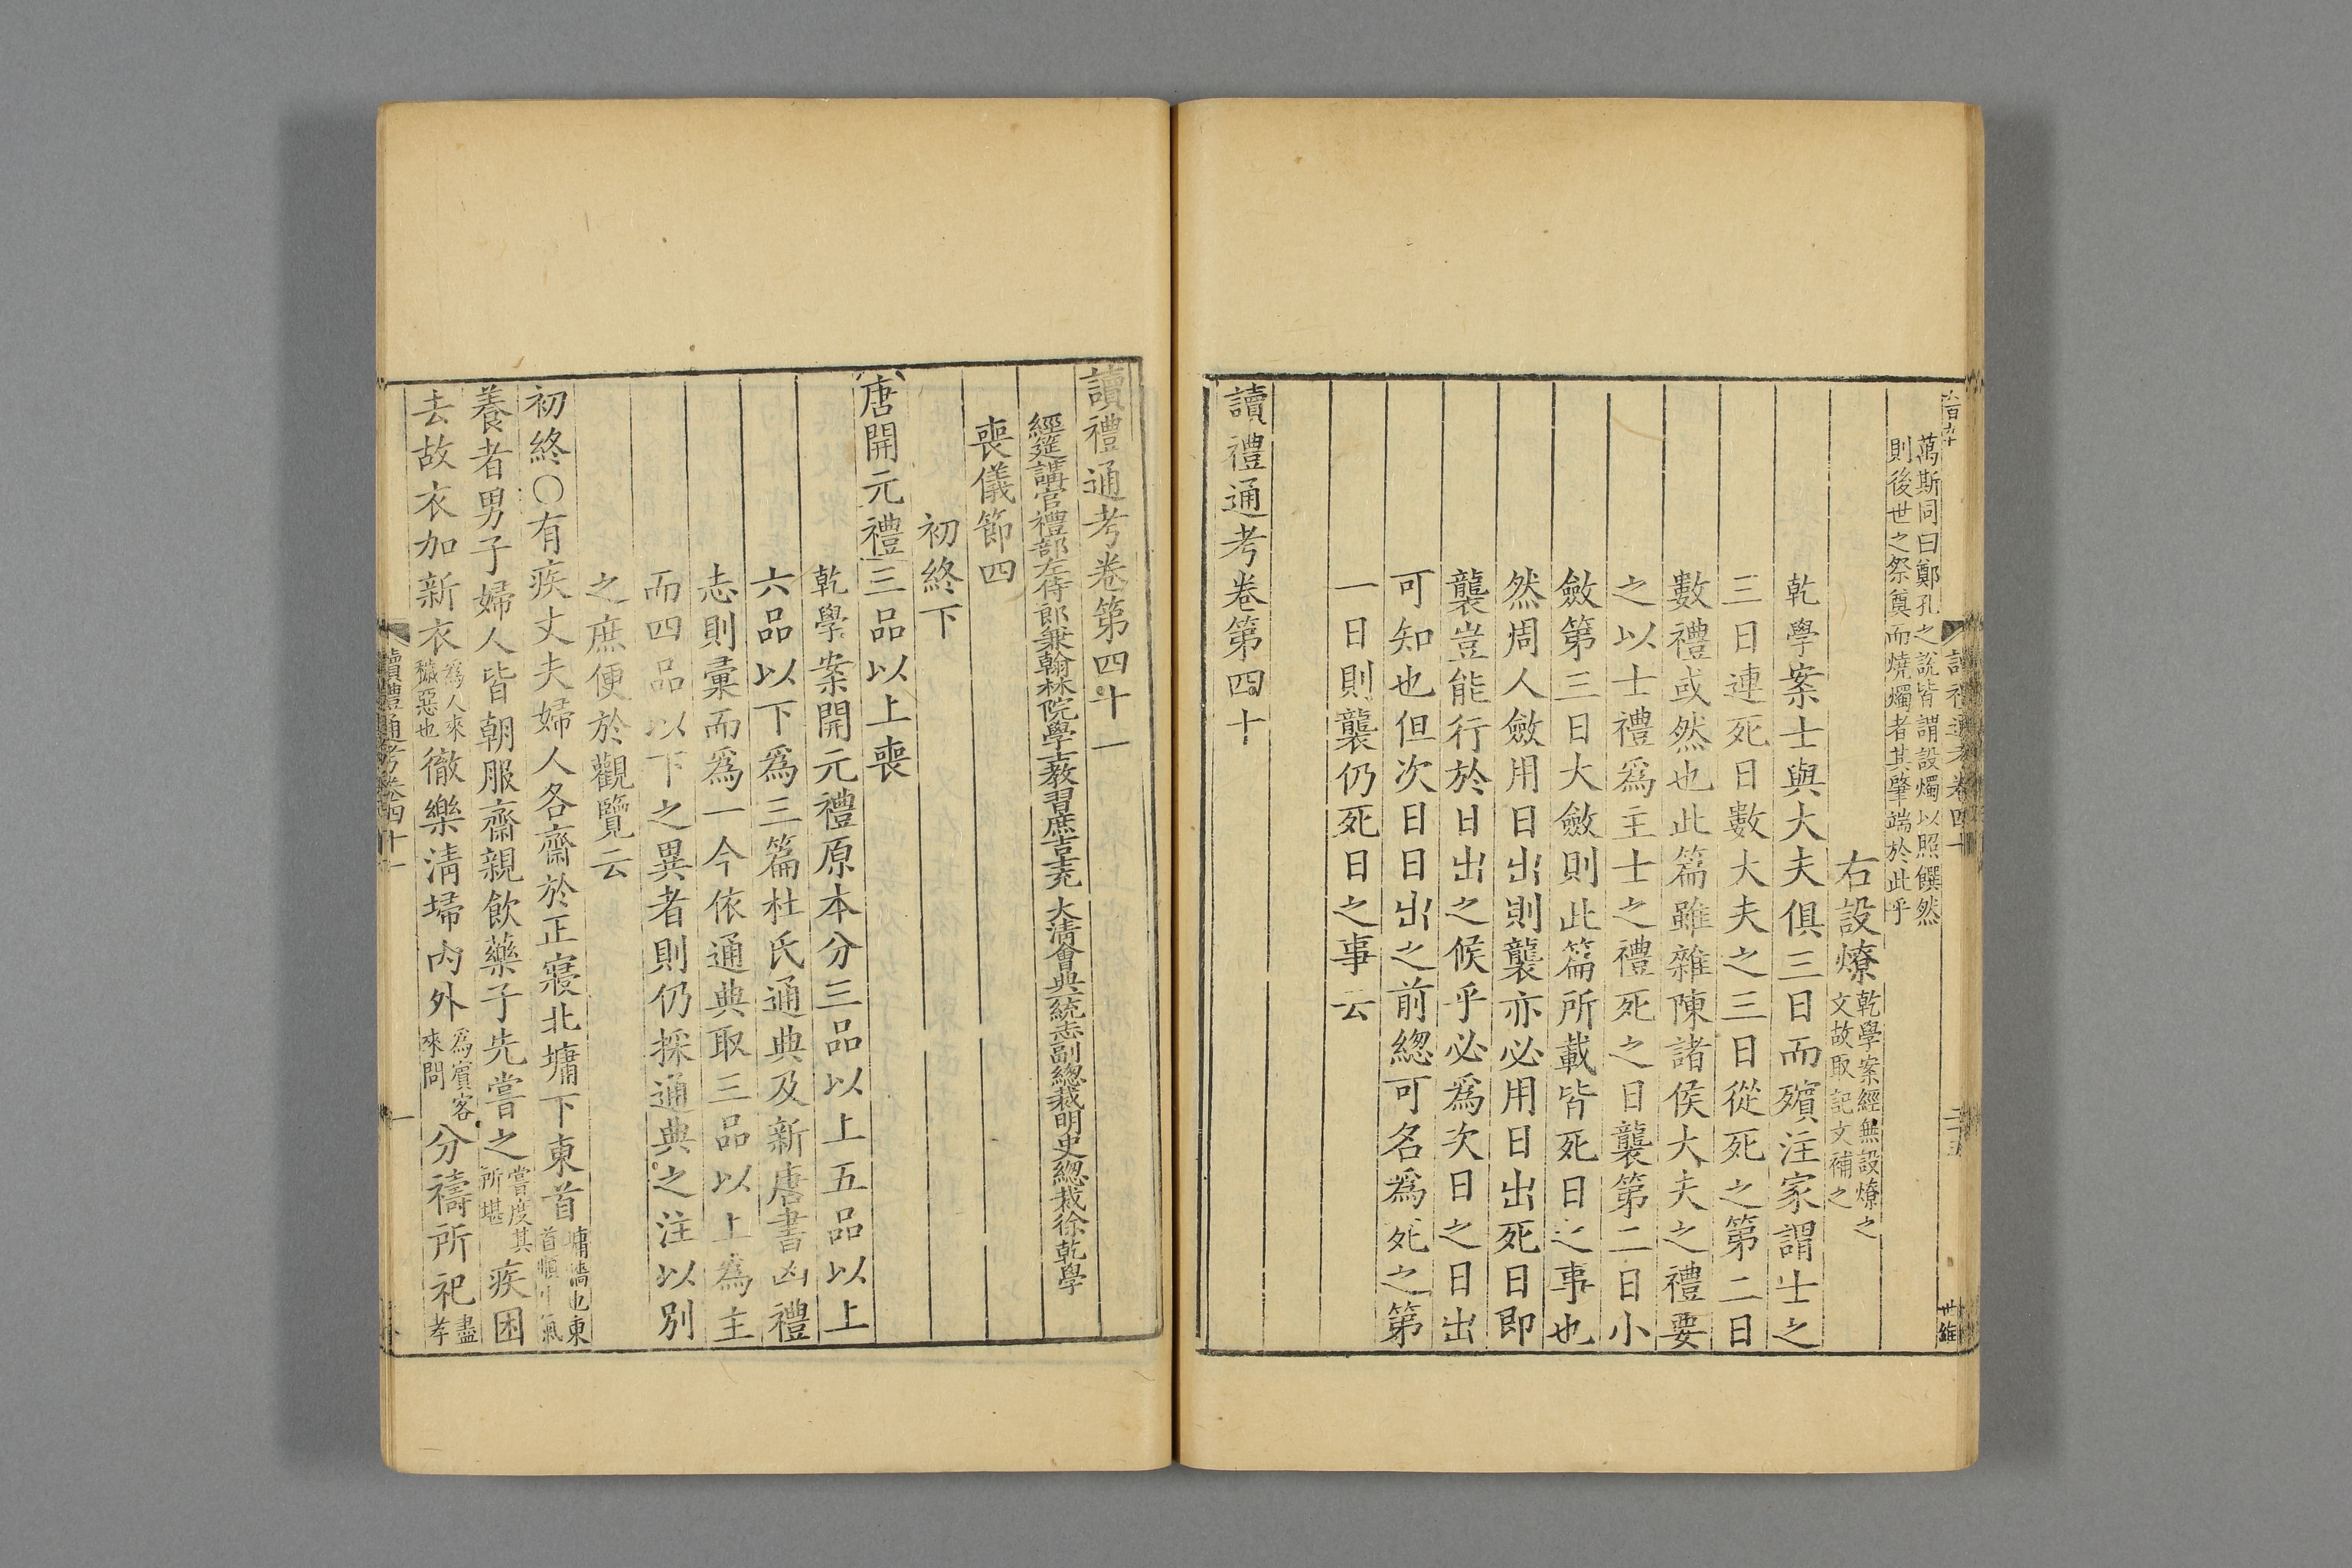 萬斯同曰鄭孔之說皆謂設燭以照饌然
則後世之祭奠而燒燭者其肇端於此乎
右設燎乾學案經無設燎之
文故取記文補之
乾學案士與大夫俱三日而殯注家謂士之
三日連死日數大夫之三日從死之第二日
數禮或然也此篇雖雜陳諸侯大夫之禮要
之以士禮爲主士之禮死之日襲第二日小
斂第三日大斂則此篇所載皆死日之事也
然周人斂用日出則襲亦必用日出死日即
襲豈能行於日出之候乎必爲次日之日出
可知也但次日日出之前緫可名爲死之第
一日則襲仍死日之事云
讀禮通考卷第四十
讀禮通考卷第四十一
經筵講官禮部左侍郎兼翰林院學士教習庶吉士充 大清會典一統志副總裁明史總裁徐乾學
喪儀節四
初終下
唐開元禮三品以上喪
乾學案開元禮原本分三品以上五品以上
六品以下爲三篇杜氏通典及新唐書凶禮
志則彙而爲一今依通典取三品以上爲主
而四品以下之異者則仍採通典之注以別
之庶便於觀覽云
初終〇有疾丈夫婦人各齋於正寢北墉下東首墉牆也東
首順生氣
養者男子婦人皆朝服齋親飲藥子先嘗之嘗度其
所堪疾困
去故衣加新衣爲人來
穢惡也徹樂清埽內外爲賓客
來問分禱所祀盡
孝
讀禮通考卷四十一
一